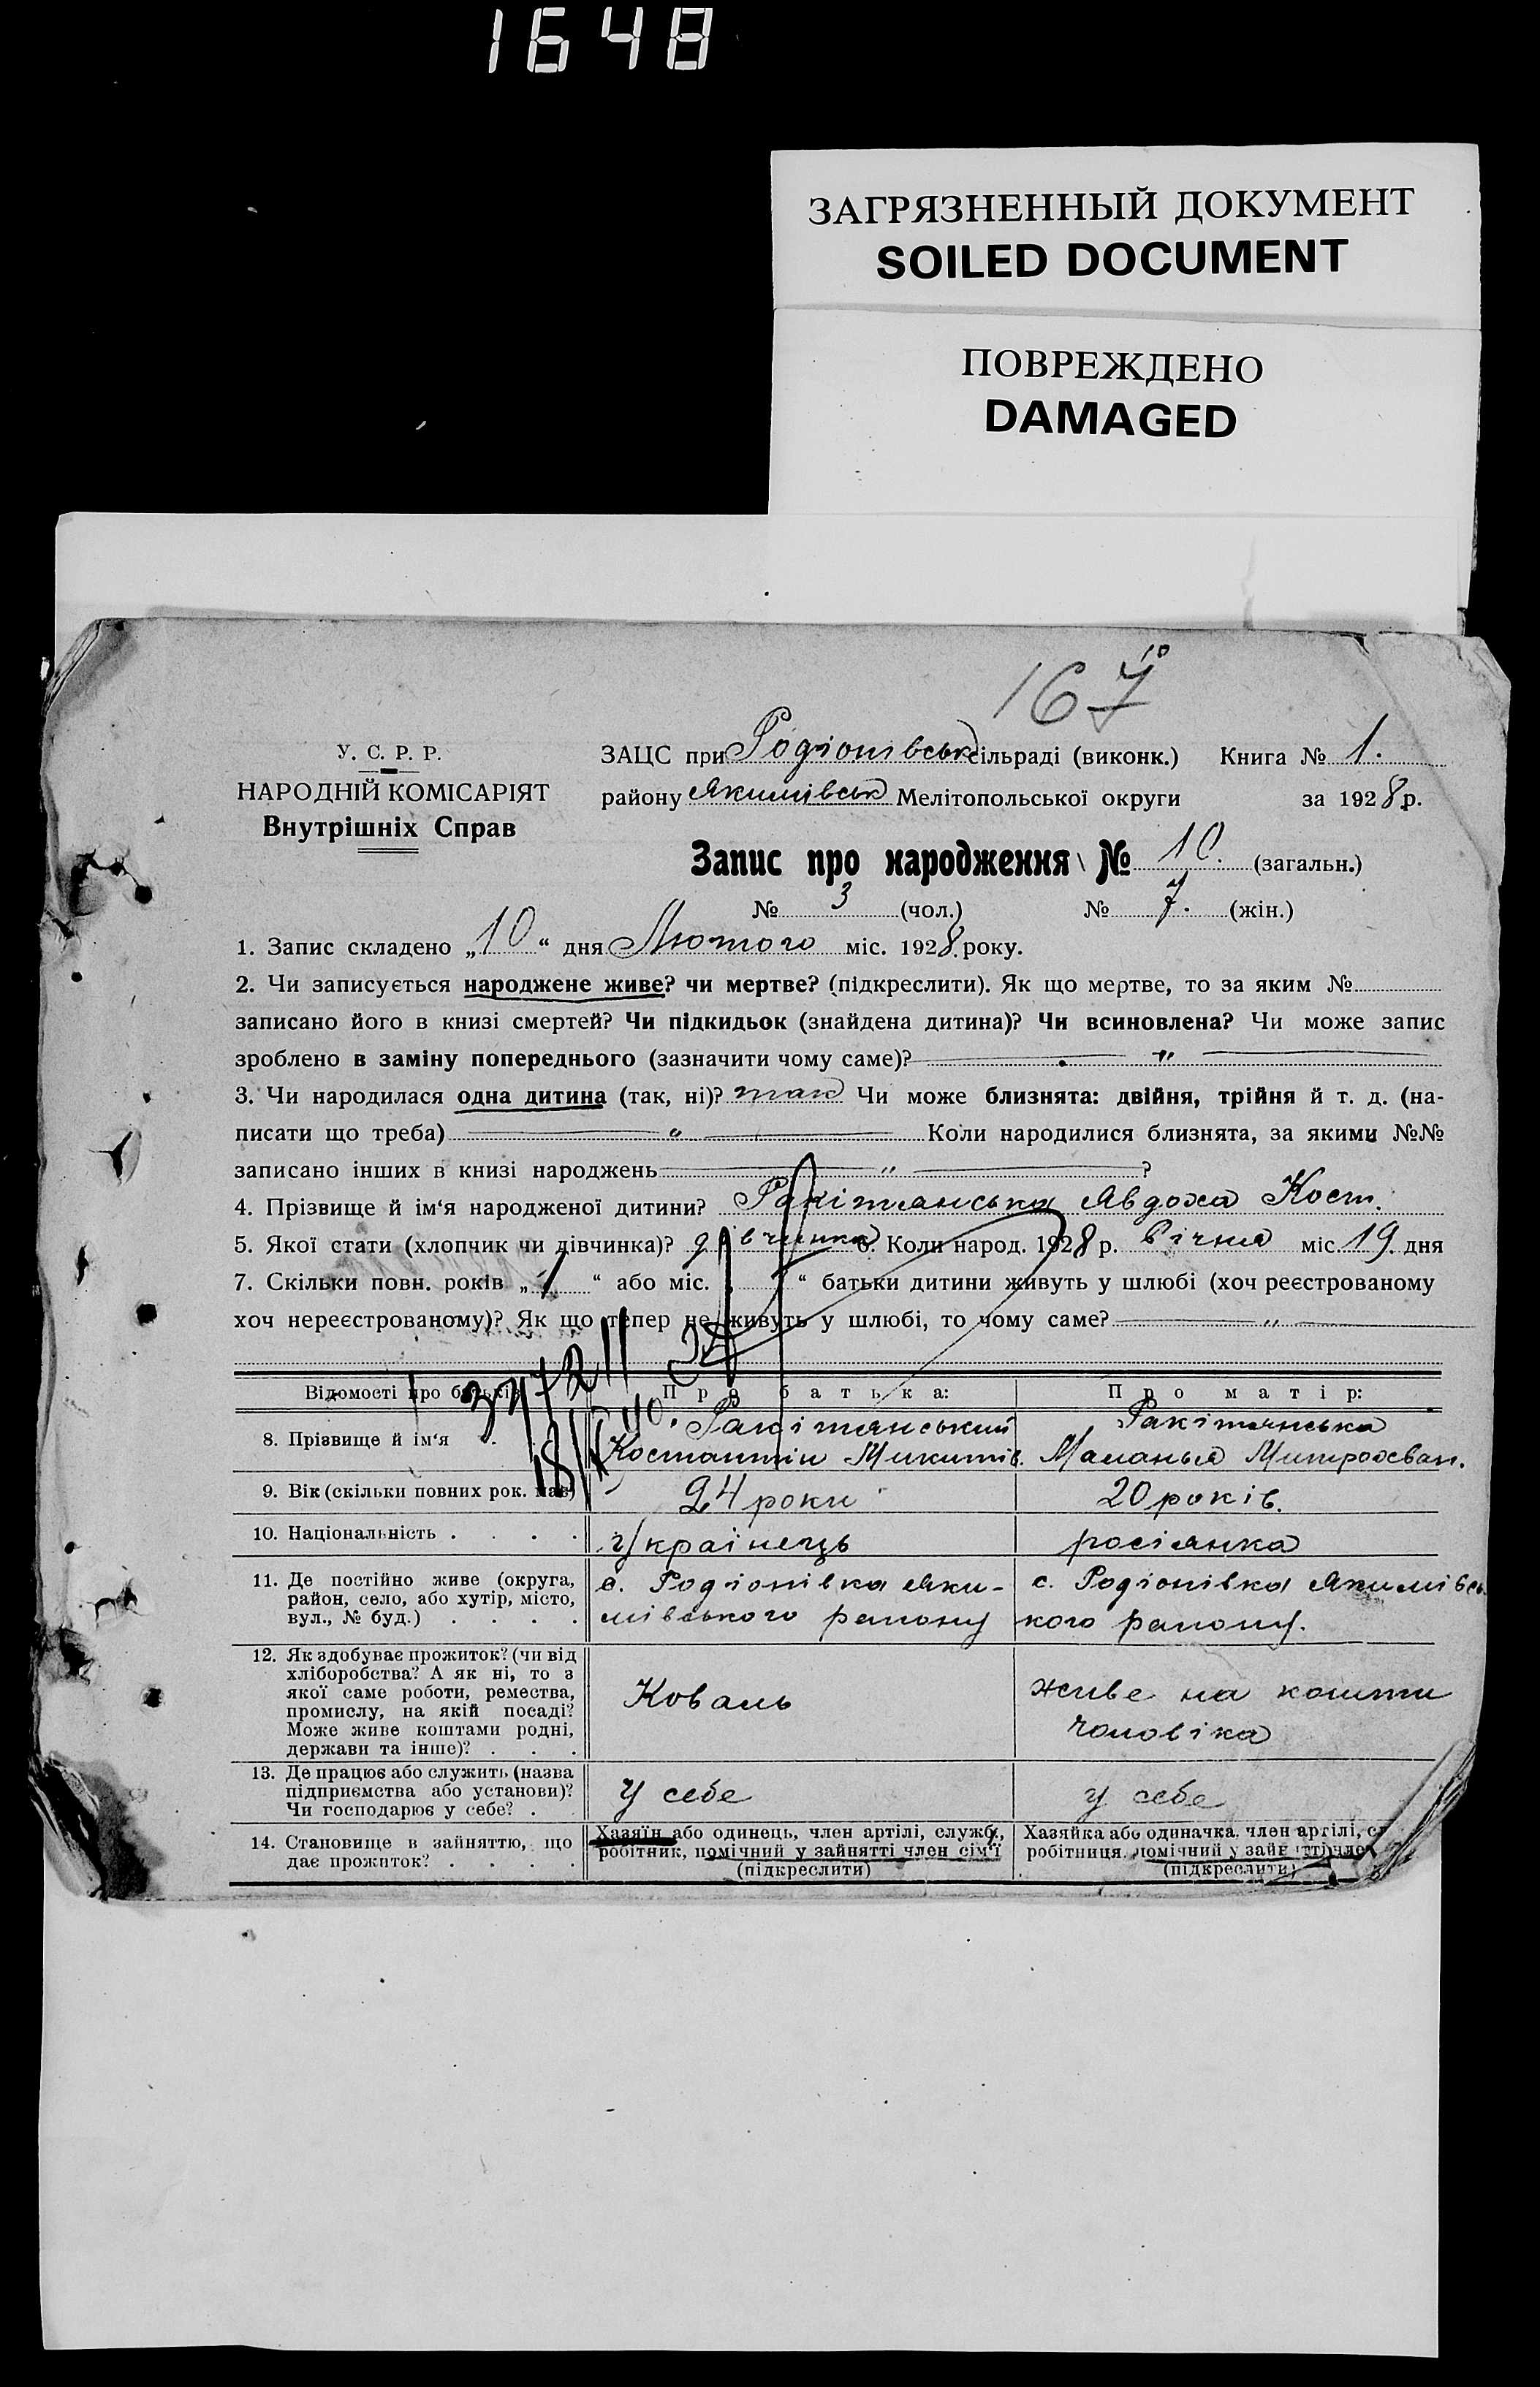 1648
ЗАГРЯЗНЕННЫЙ ДОКУМЕНТ
SOILED DOCUMENT
ПОВРЕЖДЕНО
DAMAGED
10
167
У. С. Р. Р.
НАРОДНІЙ КОМІСАРІЯТ
Внутрішніх Справ
ЗАЦС при Родіонівськ сільраді (виконк.) Книга № 1.
району Якимівськ Мелітопольської округи за 1928 р.
Запис про народження № 10. (загальн.)
№ 3 (чол.) № 7. (жін.)
1. Запис складено „10“ дня Лютого міс. 1928 року.
2. Чи записується народжене живе? чи мертве? (підкреслити). Як що мертве, то за яким №
записано його в книзі смертей? Чи підкидьок (знайдена дитина)? Чи всиновлена? Чи може запис
зроблено в заміну попереднього (зазначити чому саме)? „
3. Чи народилася одна дитина (так, ні)? так Чи може близнята: двійня, трійня й т. д. (на-
писати що треба) „ Коли народилися близнята, за якими №№
записано інших в книзі народжень „ ?
4. Прізвище й ім‘я народженої дитини? Ракітянська Явдоха Кост.
5. Якої стати (хлопчик чи дівчинка)? дівчинка 6. Коли народ. 1928 р. Січня міс. 19. дня
7. Скільки повн. років „1“ або міс. „ “ батьки дитини живуть у шлюбі (хоч реєстрованому
хоч нереєстрованому)? Як що тепер не живуть у шлюбі, то чому саме? „
Відомості про батьків Про батька: Про матір:
8. Прізвище й ім‘я Ракітянський Костянтін Микитів. Ракітянська Маланья Митрохван.
9. Вік (скільки повних рок. має) 24 роки 20 років.
10. Національність . . . . Українець росіянка
11. Де постійно живе (округа,
район, село, або хутір, місто,
вул., № буд.) . . . .
с. Родіонівка Яки-
мівського району
с. Родіонівка Якимівсь
кого району.
12. Як здобуває прожиток? (чи від
хліборобства? А як ні, то з
якої саме роботи, ремества,
промислу, на якій посаді?
Може живе коштами родні,
держави та інше)? . . .
Коваль
живе на кошти
чоловіка
13. Де працює або служить (назва
підприємства або установи)?
Чи господарює у себе? .
У себе
у себе
14. Становище в зайняттю, що
дає прожиток? . . . .
Хазяїн або одинець, член артілі, службу,
робітник, помічний у зайнятті член сім‘ї
(підкреслити)
Хазяйка або одиначка, член артілі,
робітниця, помічний у
(підкреслити)